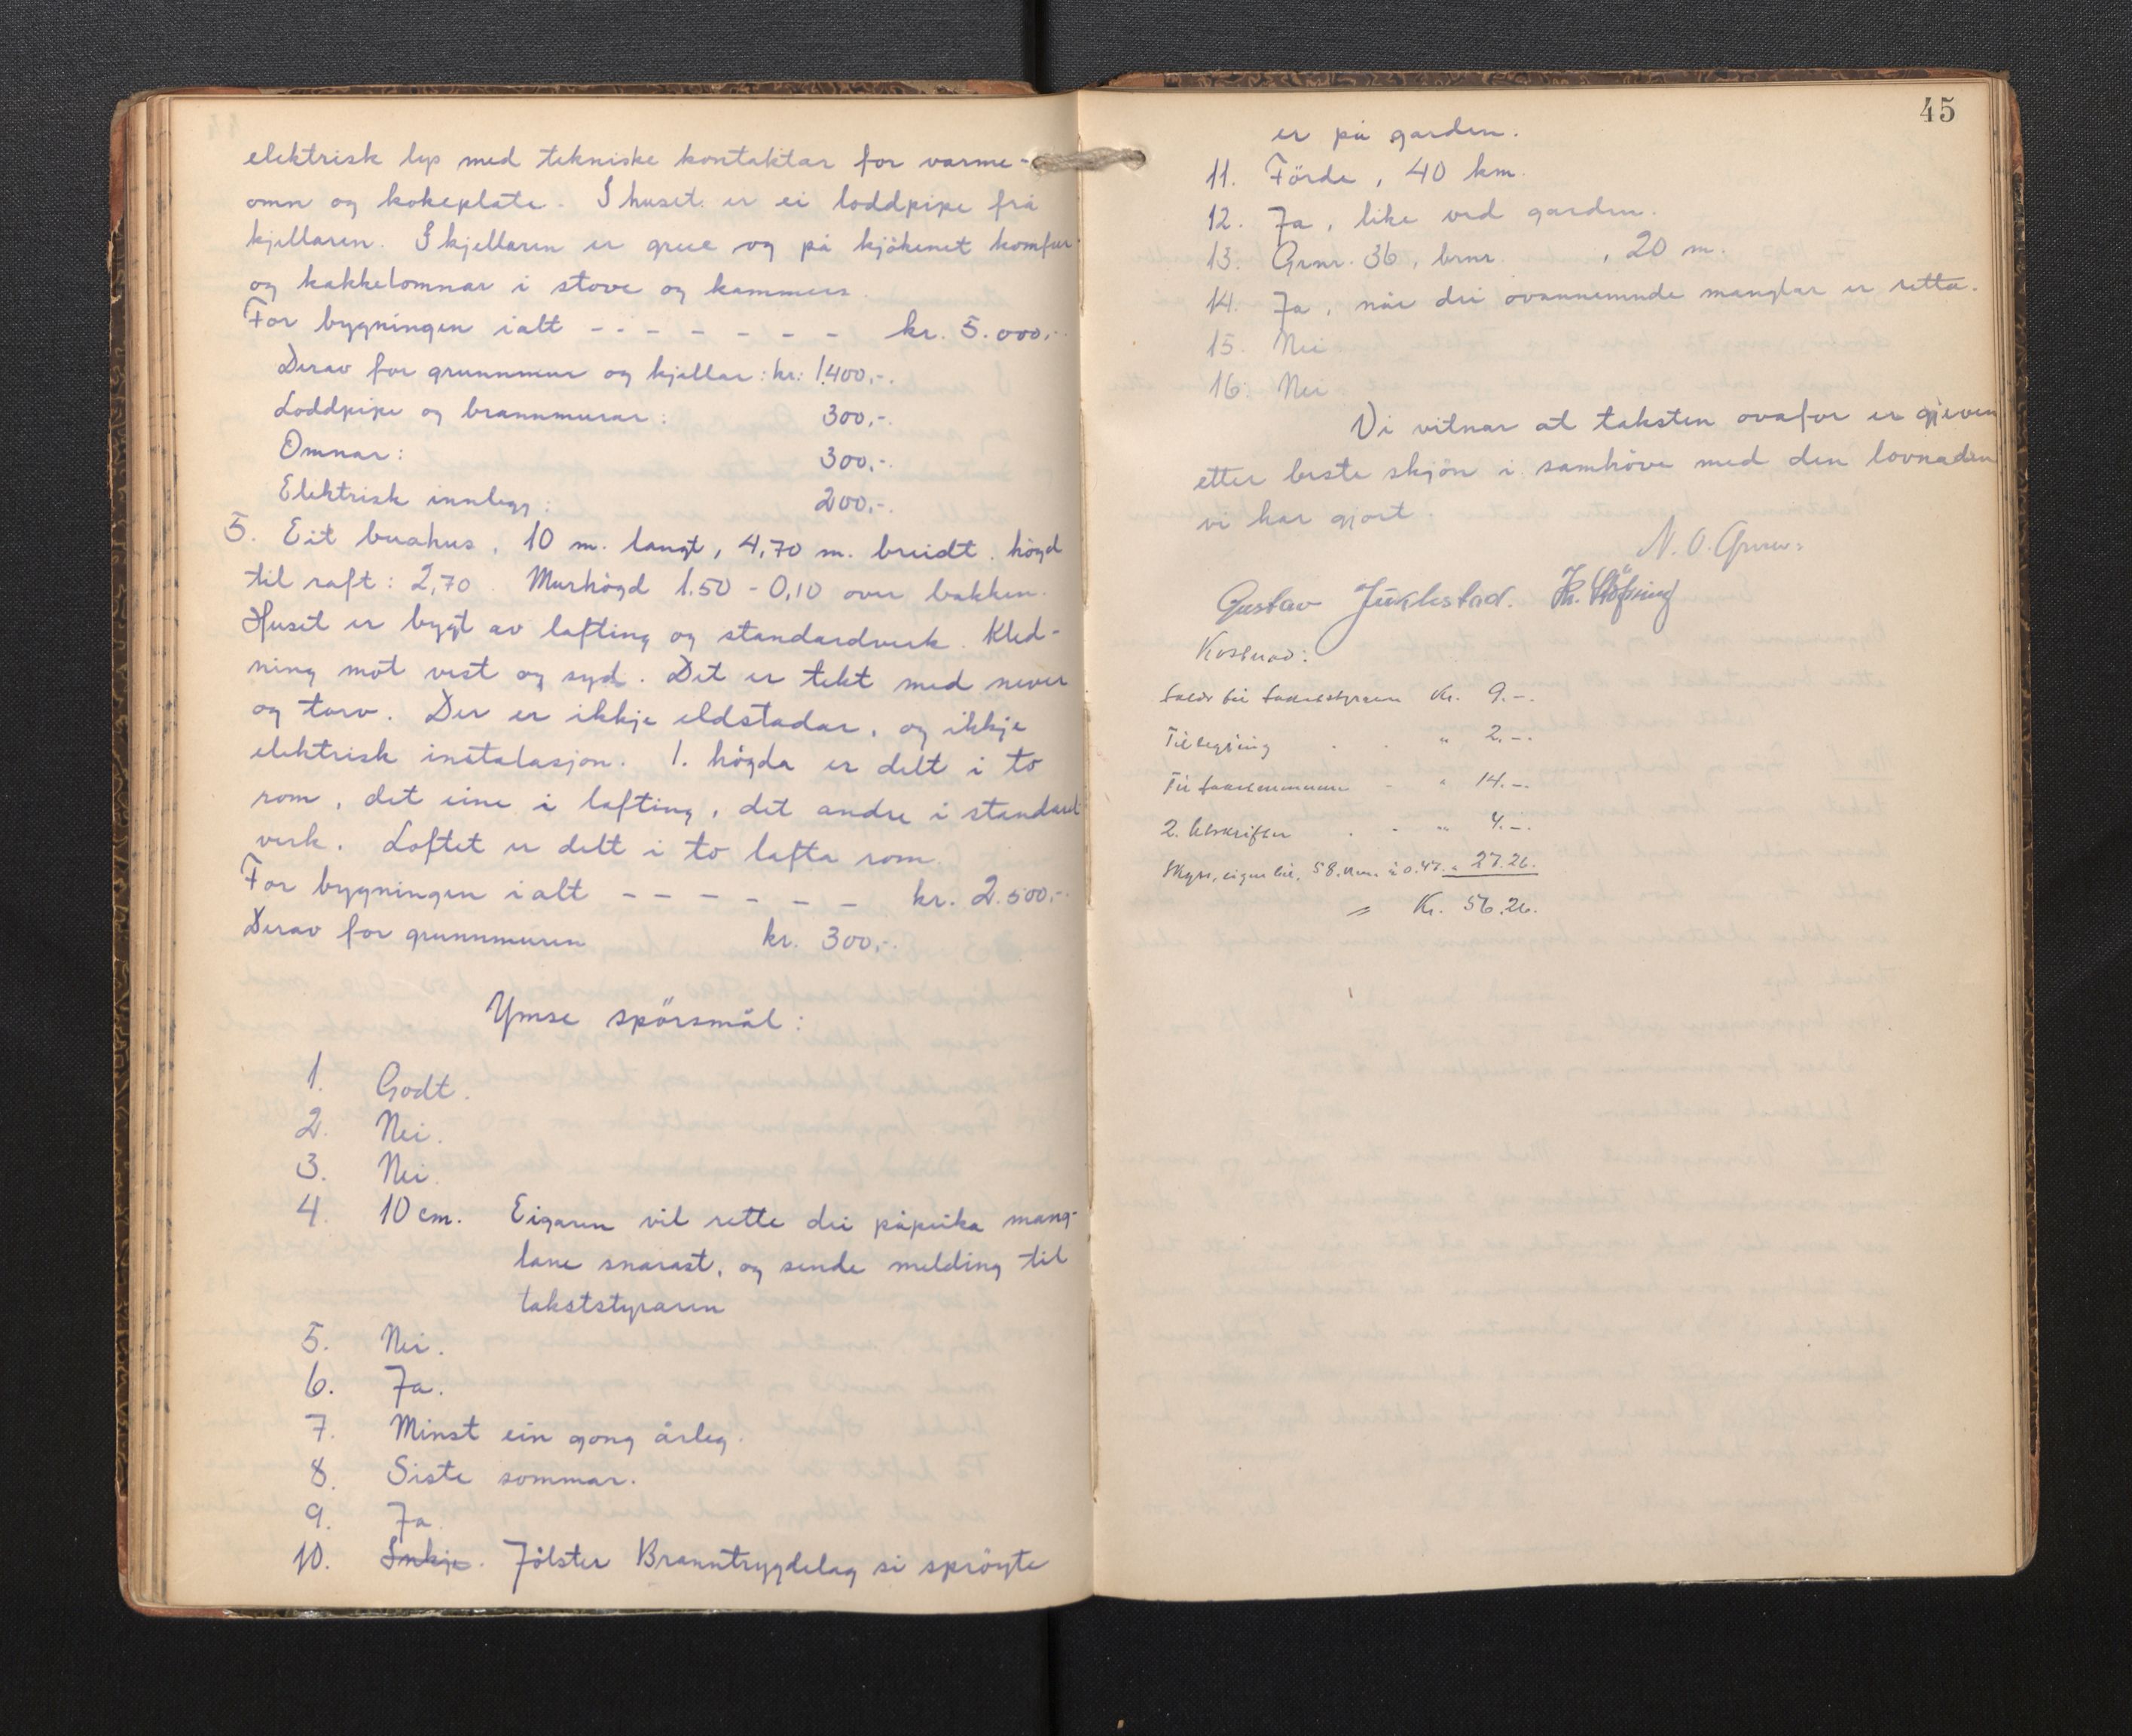 elektrisk lys med tekniske kontaktar for varme-
omn og kokeplate. I huset er ei loddpipe frå
kjellaren. I kjellaren er grue og på kjökenet komfur
og kakkelomnar i stove og kammers.
For bygningen ialt - - - - - - - kr. 5.000,-
Derav for grunnmur og kjellar: kr: 1400,-.
Loddpipe og brannmurar: 300,-.
Omnar: 300,-.
Elektrisk innlegg: 200,-.
5. Eit buahus, 10 m. langt, 4,70 m. breidt. högd
til raft: 2,70. Murhögd 1.50 - 0,10 over bakken.
Huset er bygt av lafting og standardverk. Kled-
ning mot vest og syd. Det er tekt med never
og torv. Der er ikkje eldstadar, og ikkje
elektrisk instalasjon. 1. högda er delt i to
rom, det eine i lafting, det andre i standard
verk. Loftet er delt i to lafta rom.
For bygningen ialt - - - - - - kr. 2.500,-
Derav for grunnmuren kr. 300,-.
Ymse spörsmål:
1. Godt.
2. Nei.
3. Nei.
4. 10 cm. Eigaren vil rette dei påpeika mang-
lane snarast, og sende melding til
takststyraren
5. Nei.
6. Ja.
7. Minst ein gong årleg.
8. Siste sommar.
9. Ja
10. Inkje. Jölster Branntrygdelag si spröyte
45
er på garden.
11. Förde, 40 km.
12. Ja, like ved garden.
13. Grnr. 36, brnr. , 20 m.
14. Ja, når dei ovannemnde manglar er retta.
15. Nei
16. Nei
Vi vitnar at taksten ovafor er gjeven
etter beste skjön i samhöve med den lovnaden
vi har gjort.
N. O.
Gustav Jüklestad.
Kostnad:
til Kr. 9.-.
" 2.-.
Til takstmennene " 14.-.
2. Utskrifter " 4.-.
Skyss, eigen bil, 58. km. à 0.47. " 27.26.
= Kr. 56.26.